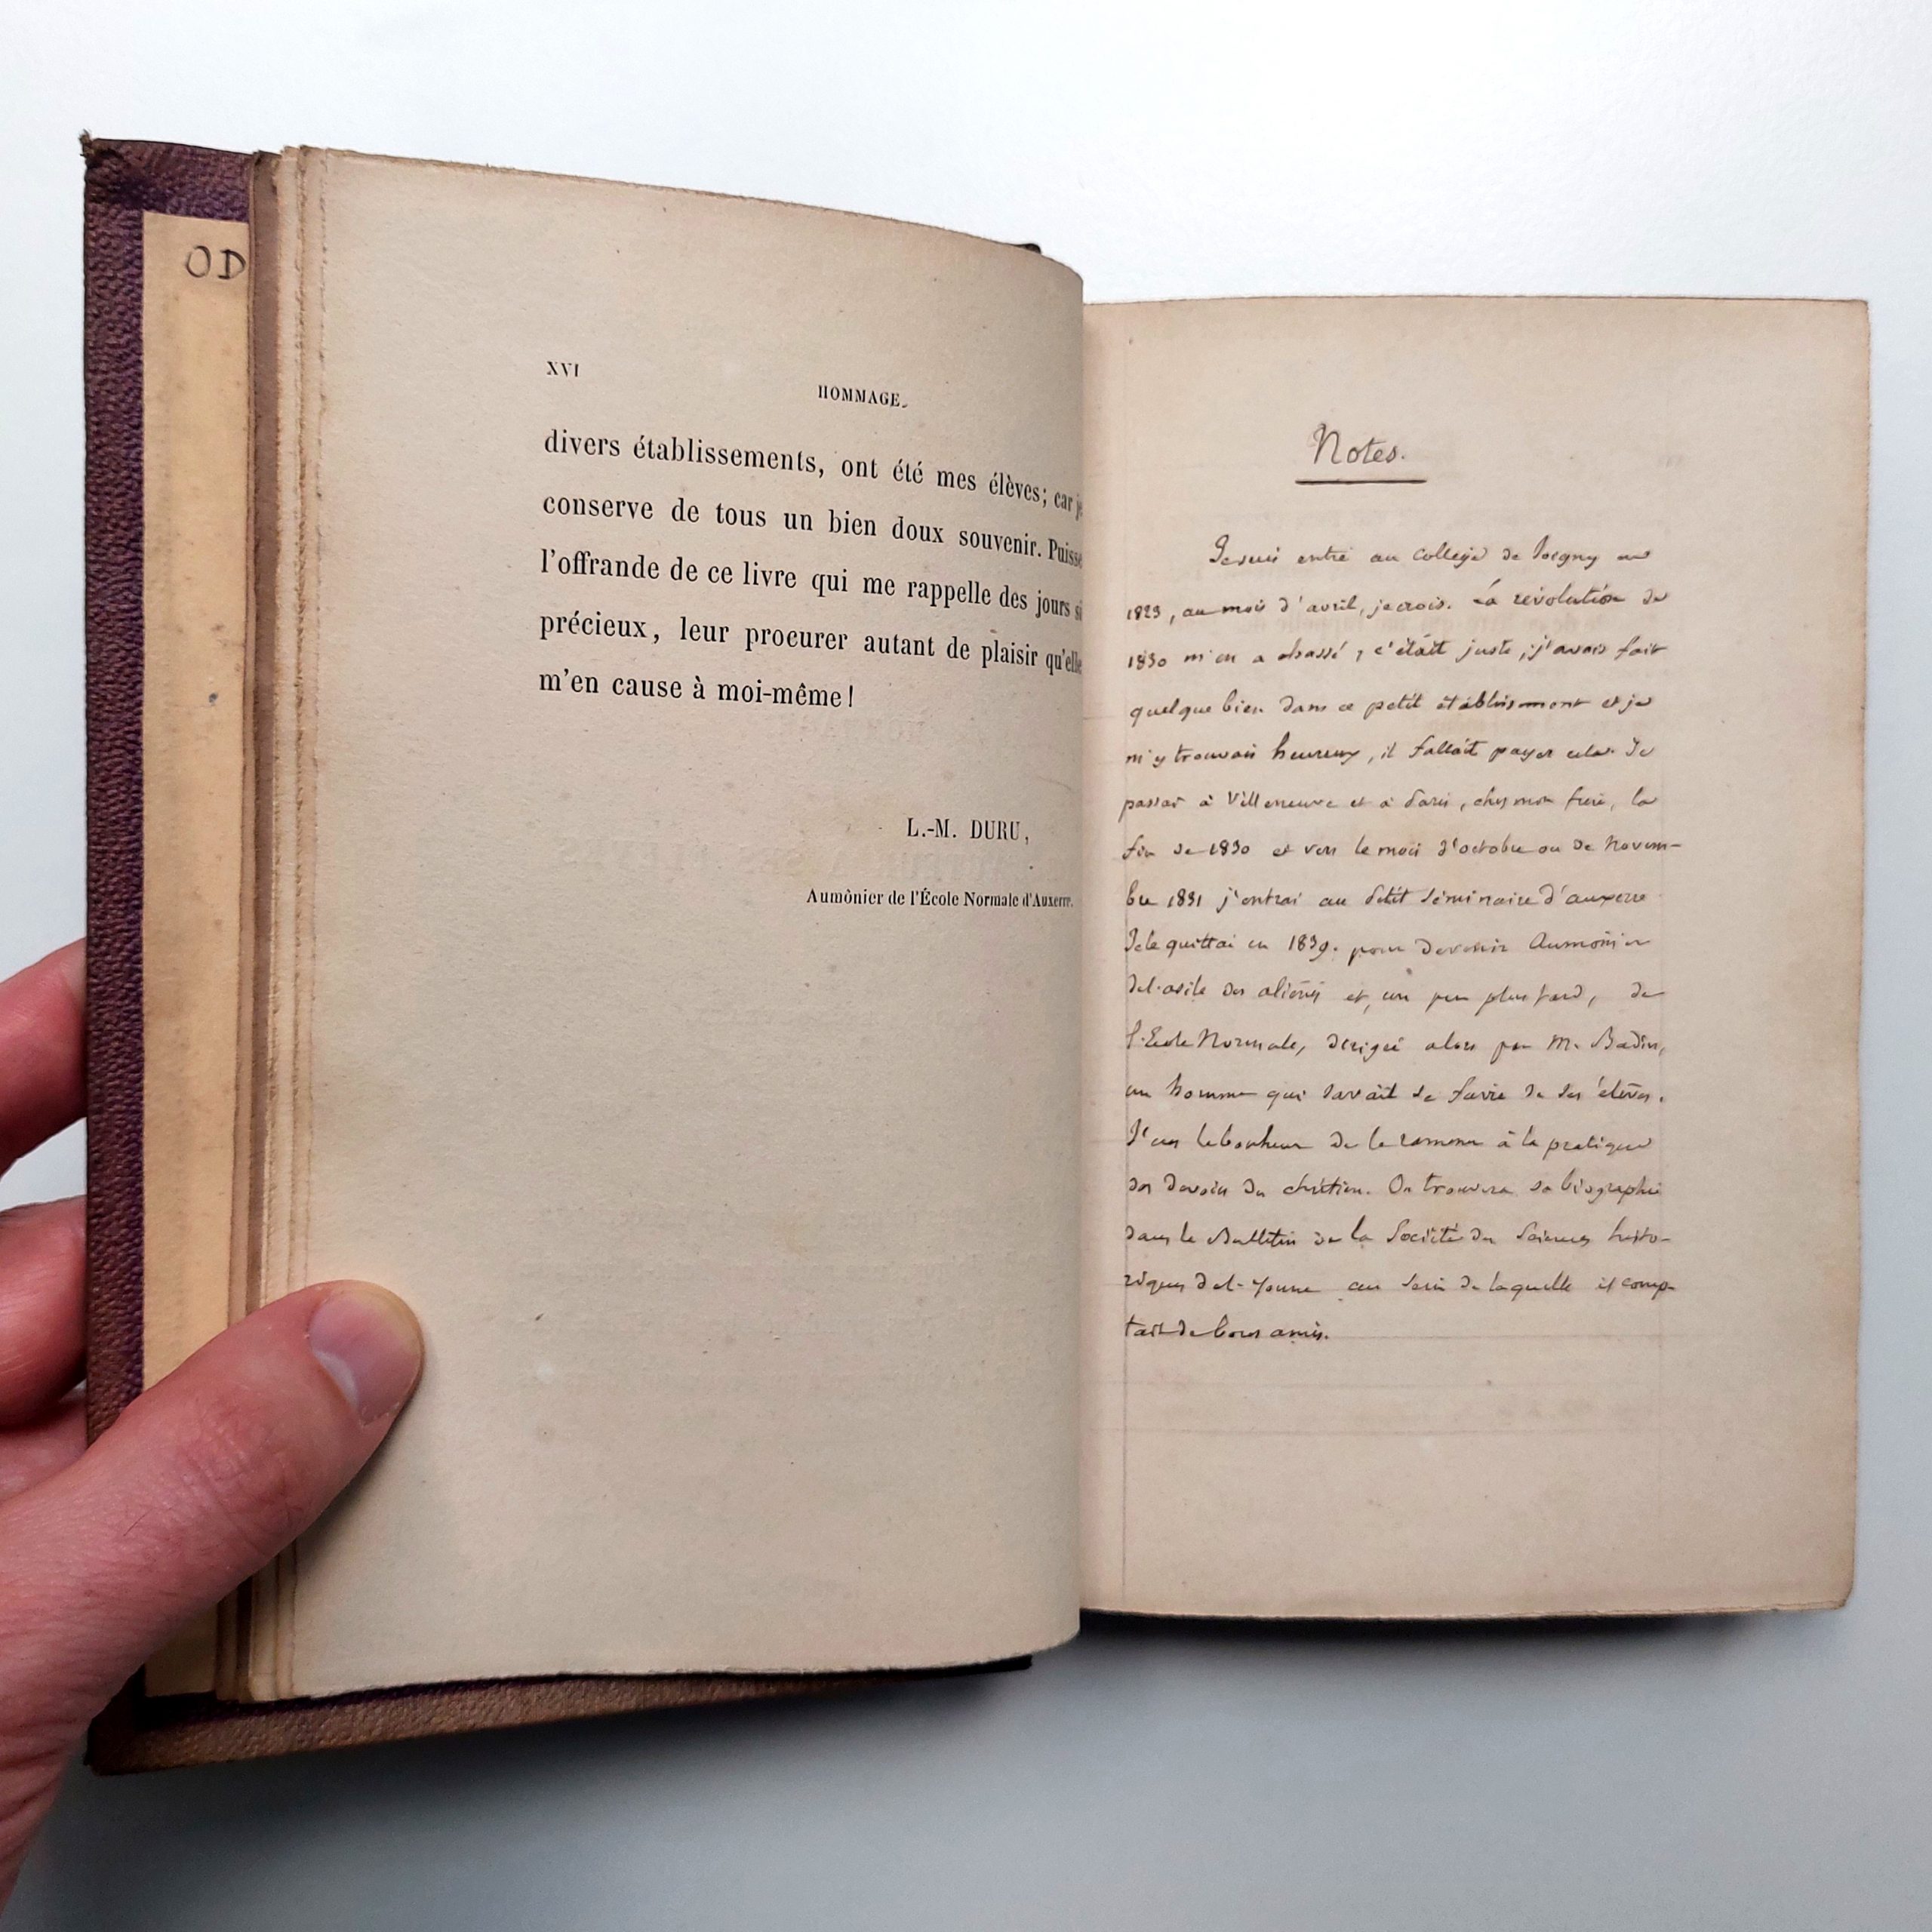 OD
XVI
HOMMAGE.
divers établissements, ont été mes élèves; car je
conserve de tous un bien doux souvenir. Puisse
l'offrande de ce livre qui me rappelle des jours si
précieux, leur procurer autant de plaisir qu'elle
m'en cause à moi-même!
L.-M. DURU,
Aumônier de l'École Normale d'Auxerre.
Notes.
Je suis entré au collège de Joigny en
1823, au mois d'avril, je crois. La révolution de
1830 m'en a chassé; c'était juste; j'avais fait
quelque bien dans ce petit établissement et je
m'y trouvais heureux, il fallait payer cela. Je
passai à Villeneuve et à Paris, chez mon frère, la
fin de 1830 et vers le mois d'octobre ou de Novem-
bre 1831 j'entrai au Petit Séminaire d'auxerre
Je le quittai en 1839. pour devenir Aumônier
de l'asile des aliénés et, un peu plus tard, de
l'Ecole Normale, dirigée alors par M. Badin,
un homme qui savait se faire de ses élèves.
J'eus le bonheur de le ramener à la pratique
des devoirs du chrétien. On trouvera sa biographie
dans le Bulletin de la Société des Sciences histo-
riques de l'Yonne au sein de laquelle il comp-
tait de bons amis.